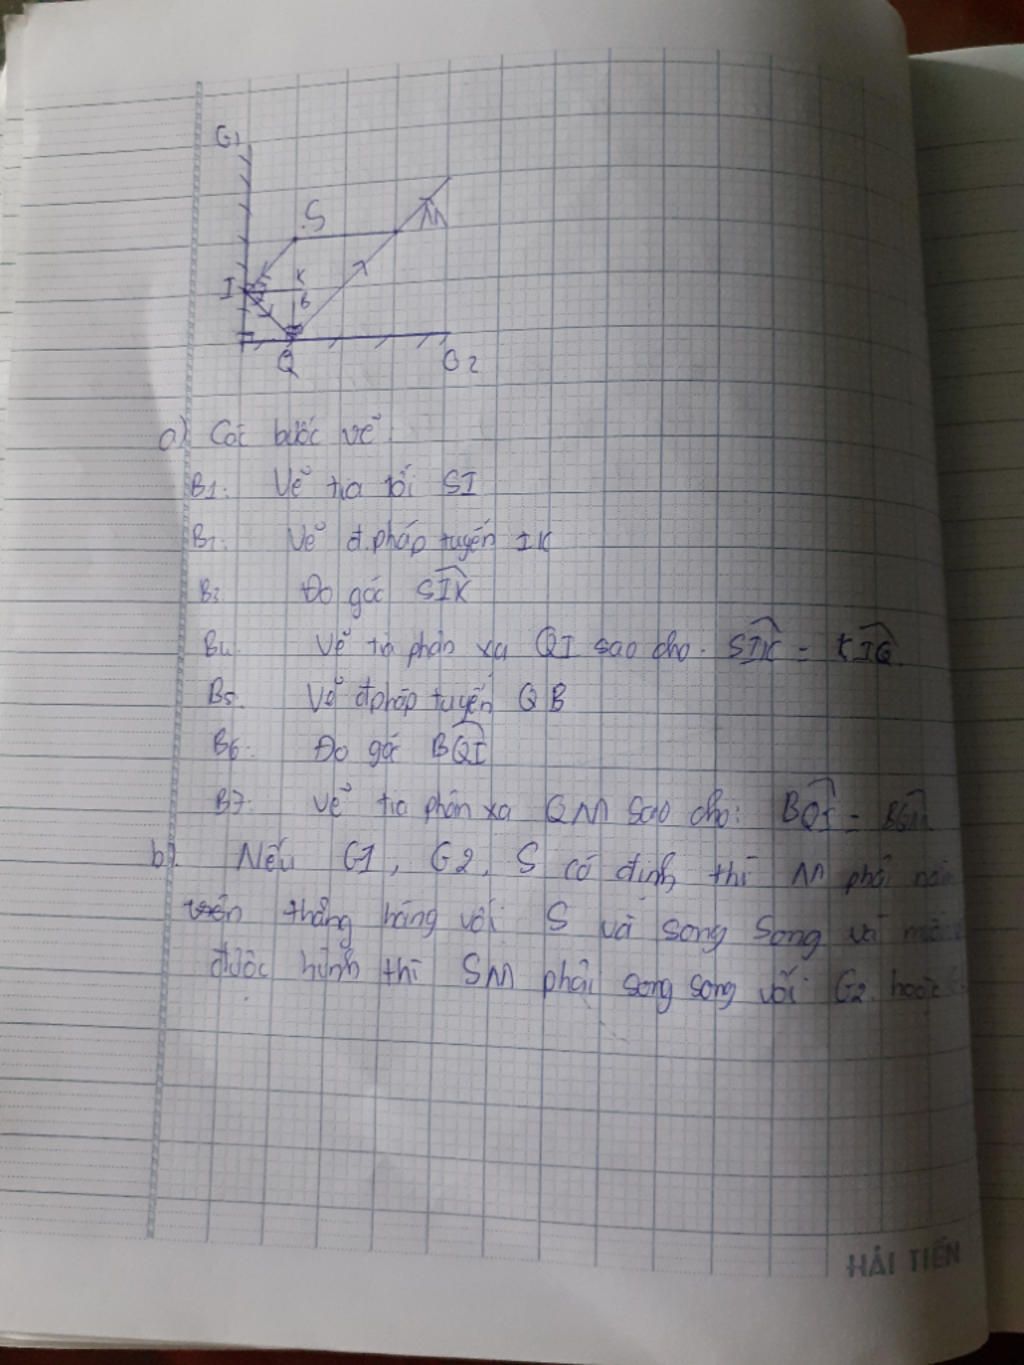 G1
.S
M
I
K
B
Q
G2
a) Các bước vẽ
B1: Vẽ tia tới SI
B2: Vẽ đ.pháp tuyến IK
B3 Đo góc SIK
B4 Vẽ tia phản xạ QI sao cho. SIK = KIQ.
B5. Vẽ đpháp tuyến QB
B6: Đo góc BQI
B7: Vẽ tia phản xạ QM sao cho: BQI = BQM
b) Nếu G1, G2, S cố định thì M phải nằm
thẳng hàng với S và song song và
được hình thì SM phải song song với G2. hoặc
HẢI TIẾN